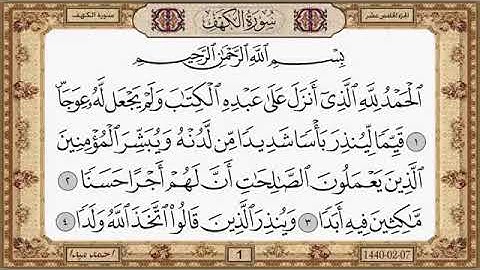 الجزء الخامس عشر
سورة الكهف
سورة الكهف
بِسْمِ ٱللَّهِ ٱلرَّحْمَٰنِ ٱلرَّحِيمِ
ٱلْحَمْدُ لِلَّهِ ٱلَّذِىٓ أَنزَلَ عَلَىٰ عَبْدِهِ ٱلْكِتَٰبَ وَلَمْ يَجْعَل لَّهُۥ عِوَجَاۜ
١ قَيِّمًا لِّيُنذِرَ بَأْسًا شَدِيدًا مِّن لَّدُنْهُ وَيُبَشِّرَ ٱلْمُؤْمِنِينَ
ٱلَّذِينَ يَعْمَلُونَ ٱلصَّٰلِحَٰتِ أَنَّ لَهُمْ أَجْرًا حَسَنًا ٢
مَّٰكِثِينَ فِيهِ أَبَدًا ٣ وَيُنذِرَ ٱلَّذِينَ قَالُوا۟ ٱتَّخَذَ ٱللَّهُ وَلَدًا ٤
1440-02-07
1